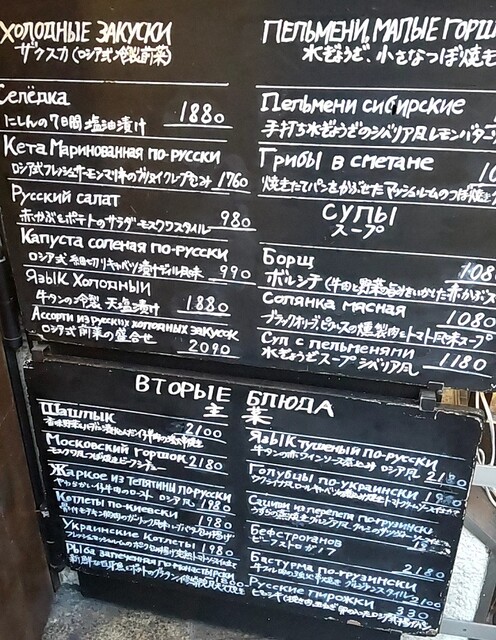 ХОЛОДНЫЕ ЗАКУСКИ
ザクスカ(ロシア式冷製前菜)
Селёдка
にしんの7日間塩油漬け 1880
Кета Маринованная по-русски
1760
Русский салат
赤かぶとポテトのサラダ モスクワスタイル 980
Капуста соленая по-русски
ロシア式 細切りキャベツ漬けディル風味 990
Язык Холодный
牛タンの冷製 天塩漬け 1880
Ассорти из русских холодных закусок
ロシア式 前菜の盛合せ 2090
ПЕЛЬМЕНИ, МАЛЫЕ ГОРШ
水ぎょうざ、小さなつぼ焼き
Пельмени сибирские
手打ち水ぎょうざのシベリア風レモンバター
Грибы в сметане 10
焼きたてパンをかぶせたマッシュルームのつぼ焼き
СУПЫ
スープ
Борщ 108
ボルシチ(牛肉と野菜の旨みをいかした赤かぶス
Солянка мясная 1080
ブラックオリーブ、ピクルスの燻製肉とトマト風味スープ
Суп с пельменями 1180
水ぎょうざスープ シベリア風
ВТОРЫЕ БЛЮДА
主菜
Шашлык
2100
Московский горшок
モスクワ風つぼ焼きビーフシチュー 2180
Жаркое из телятины по русски
やわらかい仔牛肉のロースト ロシア風 1980
Котлеты по-киевски
1980
Украинские Котлеты 1980
Рыба запеченная по-монастырски
Язык тушеный по-русски
牛タンの赤ワインソース煮込み ロシア風 2180
Голубцы по-украински
Сациви из перепела по грузински
Бефстроганов
ビーフストロガノフ
Бастурма по-грузински 2180
2100
Русские пирожки
330